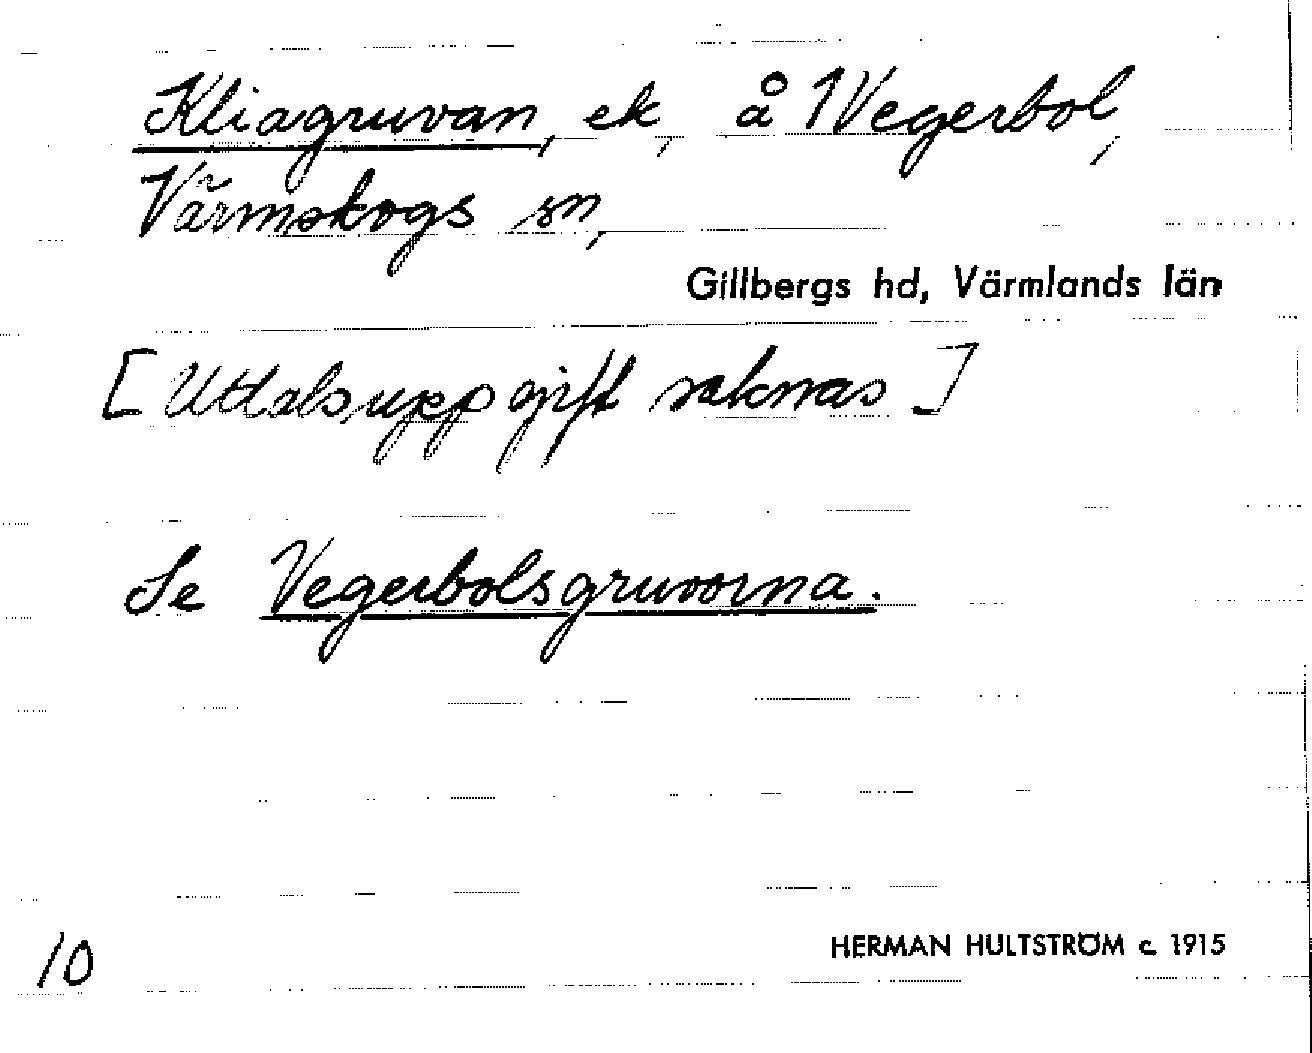 Kliagruvan, ek, å Vegerbol,
Värmskogs sn,
Gillbergs hd, Värmlands län
[Uttalsuppgift saknas]
Se Vegerbolsgruvorna.
10
HERMAN HULTSTRÖM c. 1915